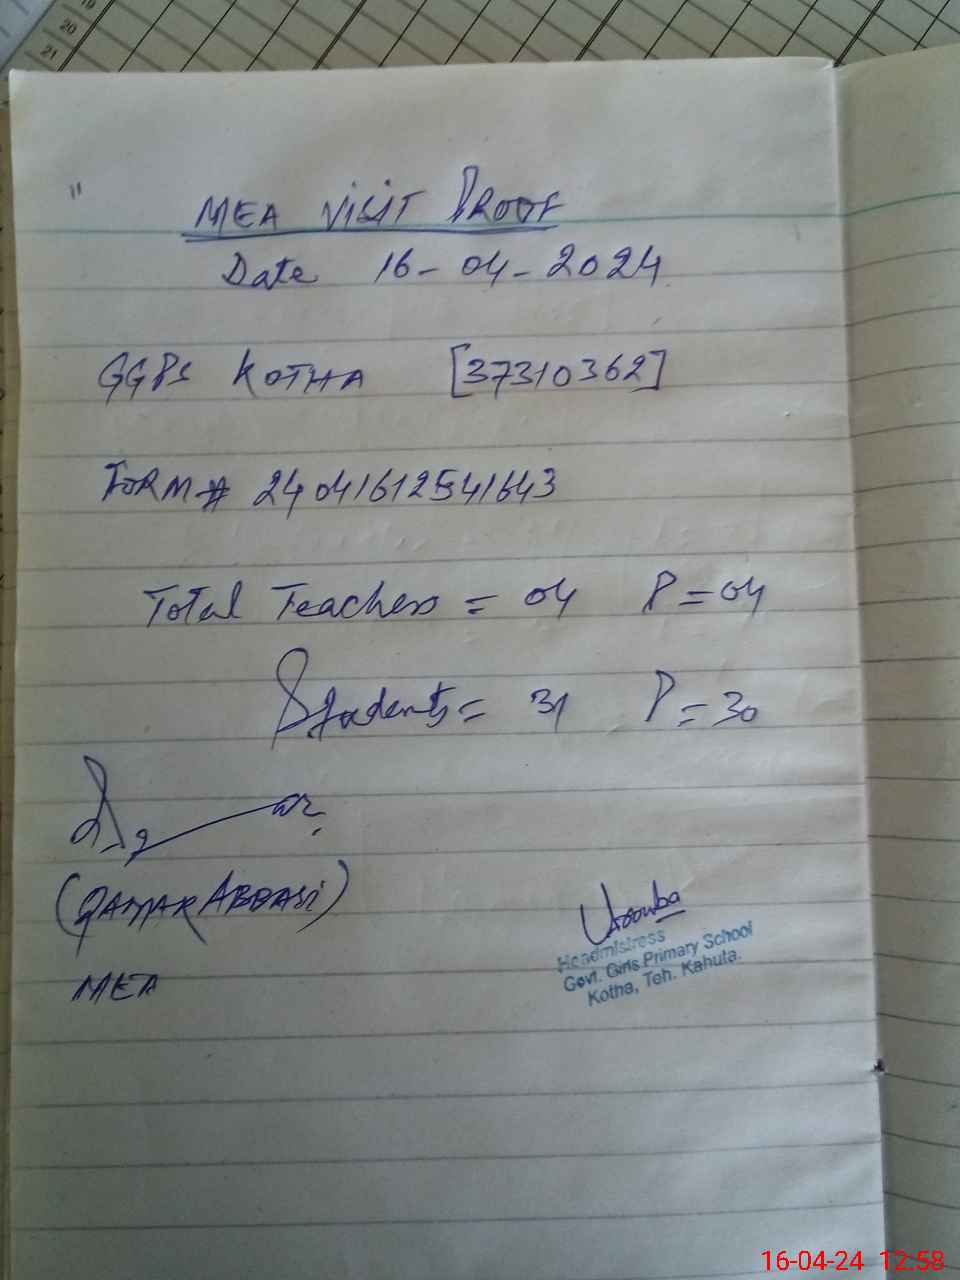 19
20
21
"
MEA VISIT PROOF
Date 16-04-2024
GGPS KOTHA [37310362]
FORM# 24041612541643
Total Teachers = 04 P = 04
Students = 31 P = 30
(QAMAR ABBASI)
MEA
Headmistress
Govt. Girls Primary School
Kotha, Teh. Kahuta.
16-04-24 12:58